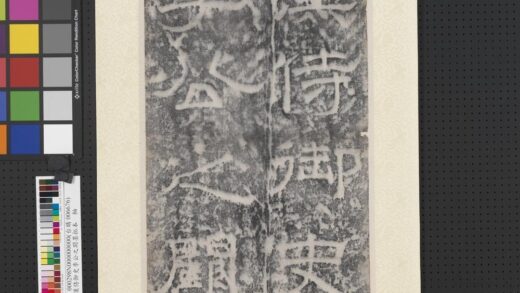 漢侍御史
李公之闕
x-rite ColorChecker Color Rendition Chart